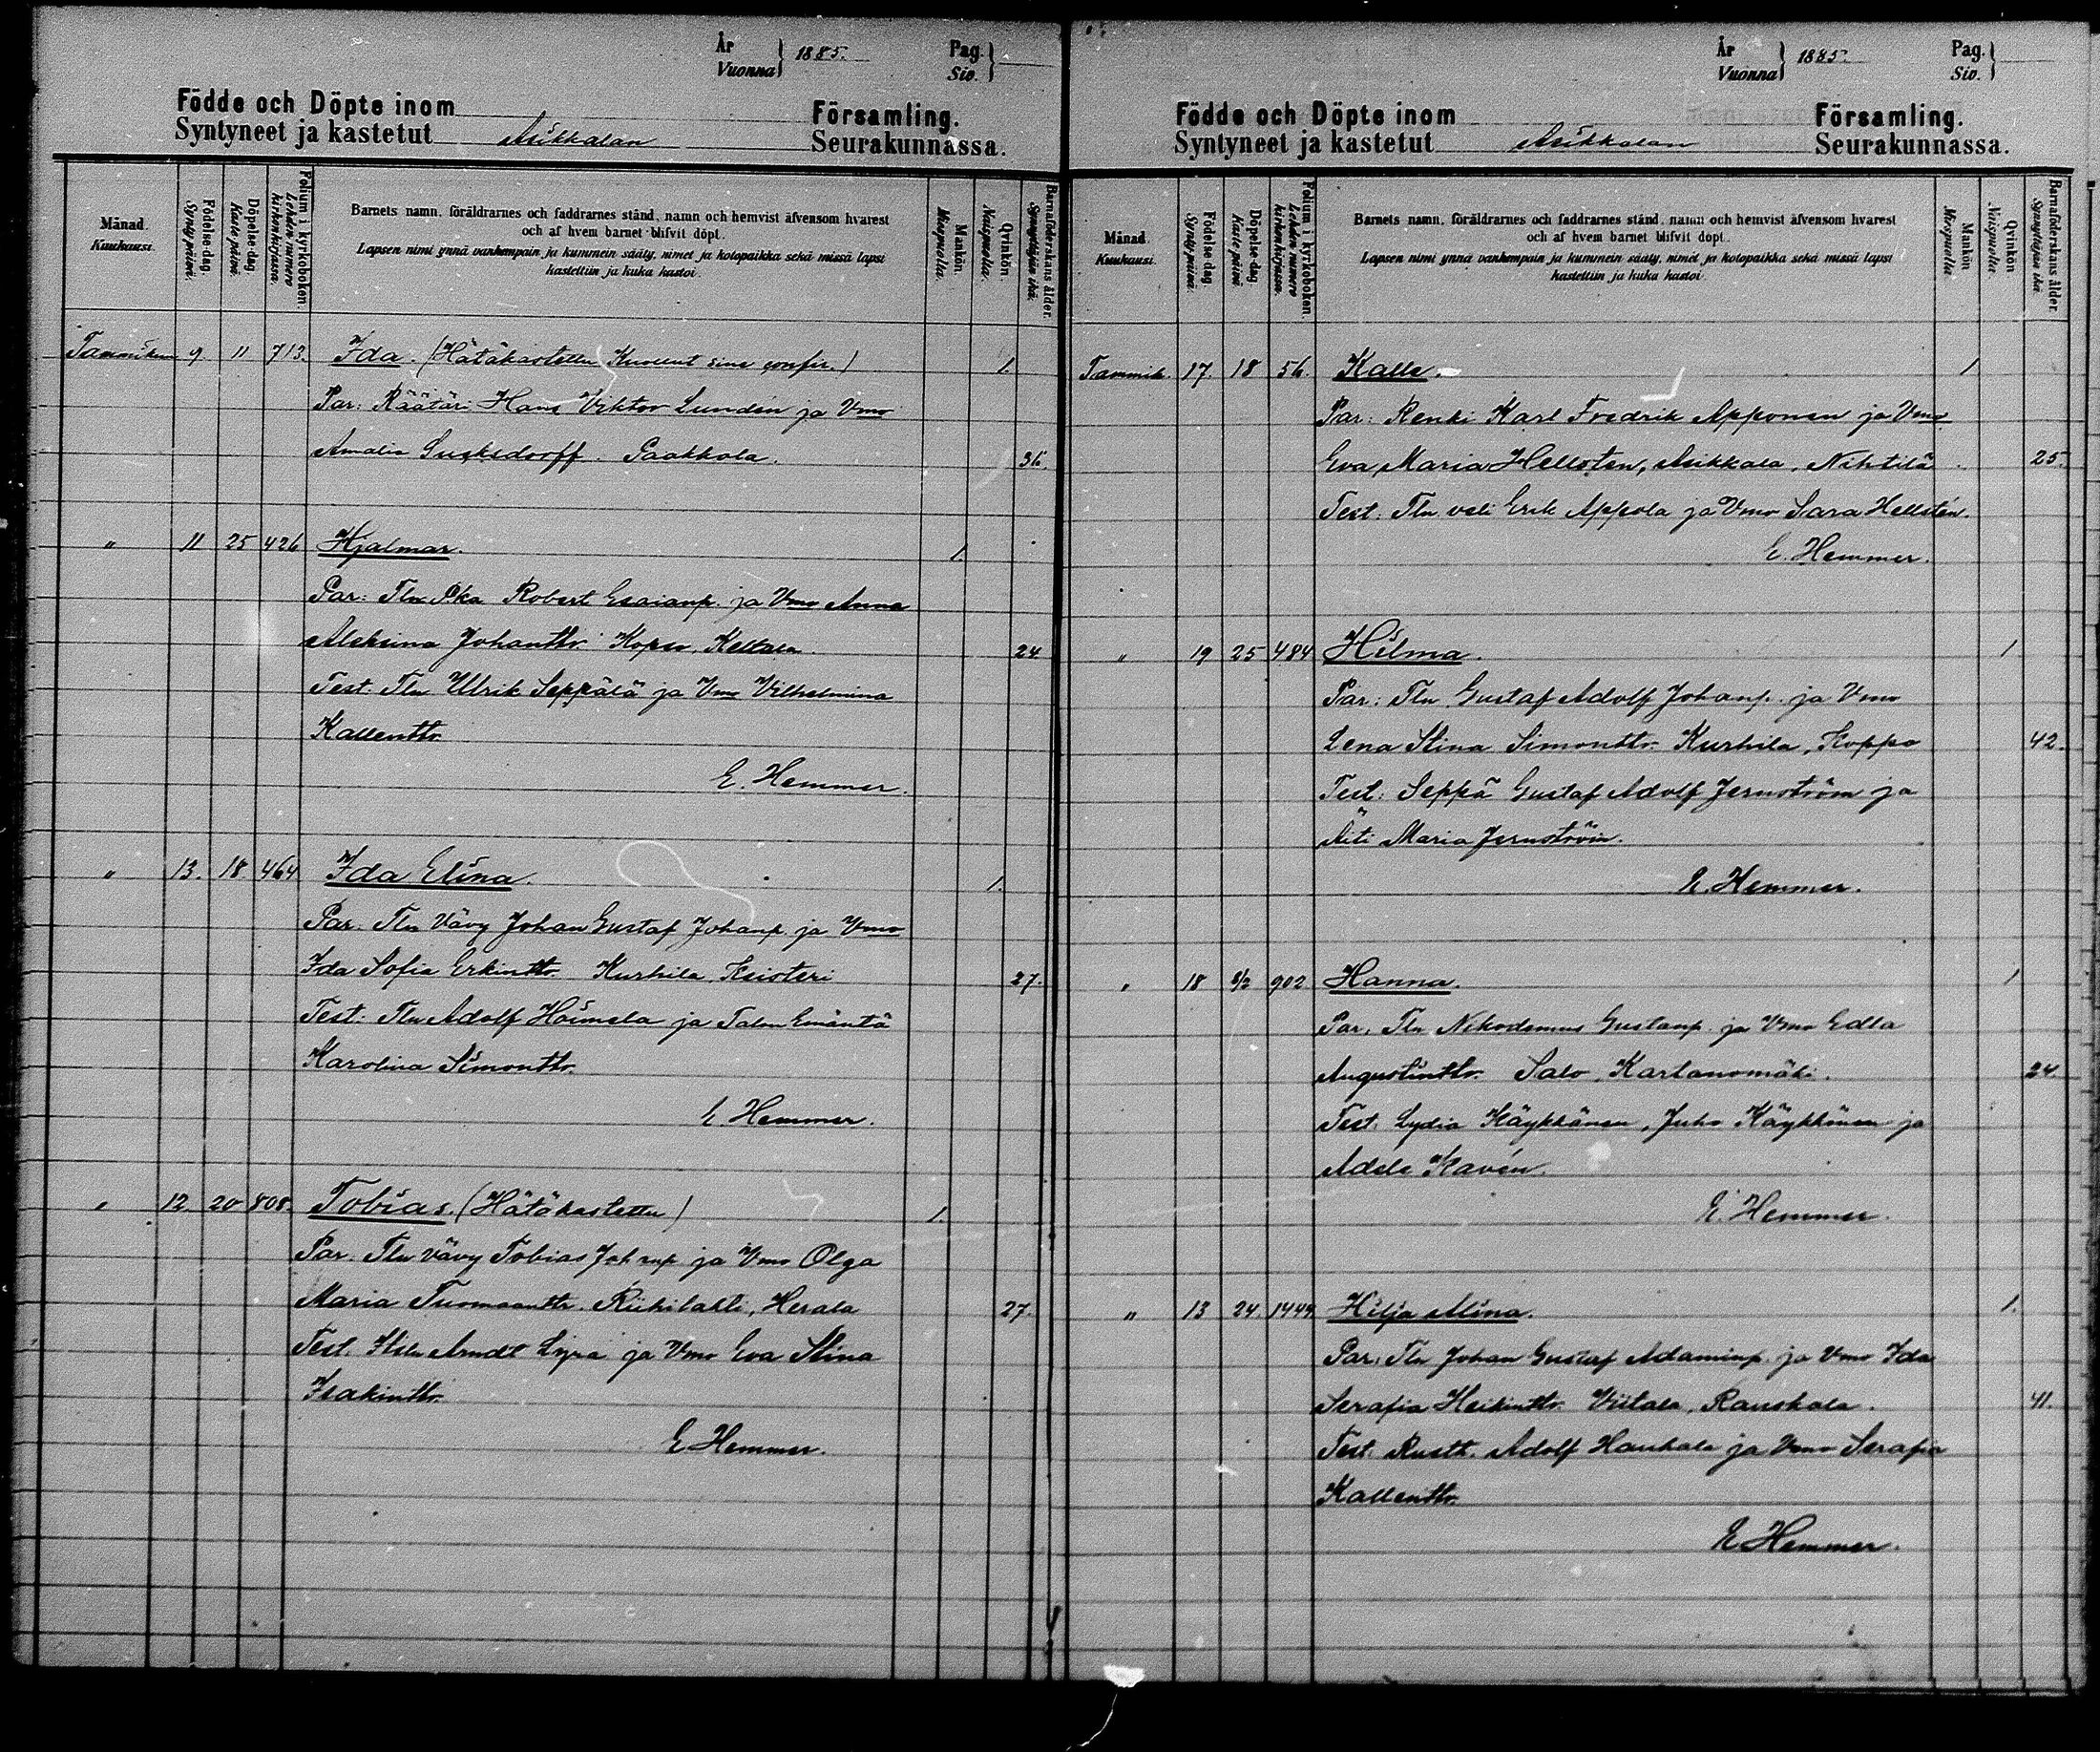 År
Vuonna } 1885.
Pag.
Siv. }
Födde och Döpte inom Församling.
Syntyneet ja kastetut Asikkalan Seurakunnassa.
Månad. Kuukausi.
Födelse-dag. Synty päivä.
Döpelse-dag. Kaste päivä.
Folium i kyrkoboken. Lehden numero kirkonkirjassa.
Barnets namn, föräldrarnes och faddrarnes stånd, namn och hemvist äfvensom hvarest
och af hvem barnet blifvit döpt.
Lapsen nimi ynnä vanhempain ja kummein sääty, nimet ja kotopaikka sekä missä lapsi
kastettiin ja kuka kastoi.
Mankön. Miespuolia.
Qvinkön. Naispuolia.
Barnaföderskans ålder. Synnyttäjän ikä.
Tammikuu 9. 11 713. Ida. (Hätäkastettu Kuollut sine confir.) 1.
Par: Räätäri Hans Viktor Lundén ja Vmo
Amalia Sucksdorff. Paakkola. 36
" 11 25 426 Hjalmar. 1.
Par: Tln Pka Robert Esaianp. ja Vmo Anna
Aleksina Johanttr. Kopso, Keltala. 24
Test. Tln Ulrik Seppälä ja Vmo Vilhelmina
Kallenttr.
E. Hemmer.
" 13. 18 464 Ida Elina. 1.
Par. Tln Vävy Johan Gustaf Johanp. ja Vmo
Ida Sofia Erkinttr. Kurhila, 27.
Test: Tln Adolf Hoimela ja Talon Emäntä
Karolina Simonttr.
E. Hemmer.
" 12. 20 808. Tobias. (Hätäkastettu) 1.
Par. Tln vävy Tobias Johanp. ja Vmo Olga
Maria Tuomaanttr. Riihilahti, Herala 27.
Test. Itsln Arndt Lyra ja Vmo Eva Stina
Isakinttr.
E. Hemmer.
År
Vuonna } 1885.
Pag.
Siv. }
Födde och Döpte inom Församling.
Syntyneet ja kastetut Asikkalan Seurakunnassa.
Månad. Kuukausi.
Födelse-dag. Synty päivä.
Döpelse-dag. Kaste päivä.
Folium i kyrkoboken. Lehden numero kirkonkirjassa.
Barnets namn, föräldrarnes och faddrarnes stånd, namn och hemvist äfvensom hvarest
och af hvem barnet blifvit döpt.
Lapsen nimi ynnä vanhempain ja kummein sääty, nimet ja kotopaikka sekä missä lapsi
kastettiin ja kuka kastoi.
Mankön Miespuolia
Qvinkön Naispuolia
Barnaföderskans ålder. Synnyttäjän ikä
Tammik. 17. 18 56. Kalle. 1
Par: Renki Karl Fredrik Apponen ja Vmo
Eva Maria Hellsten, Asikkala, Nihtilä 25.
Test. Tln veli Erik Appola ja Vmo Sara Hellstén.
E. Hemmer.
" 19 25 484 Hilma. 1
Par: Tln Gustaf Adolf Johanp. ja Vmo
Lena Stina Simonttr. Kurhila, Hoppo 42.
Test: Seppä Gustaf Adolf Jernström ja
Äiti Maria Jernström.
E. Hemmer.
" 18 8/2 902 Hanna. 1
Par. Tln Nikodemus Gustanp. ja Vmo Edla
Augustinttr. Salo, Kartanomäki. 24
Test. Lydia Käykkänen, Juho Käykkänen ja
Adele Kavén.
E. Hemmer.
" 13 24. 1449 Hilja Alina. 1.
Par. Tln Johan Gustaf Adaminp. ja Vmo Ida
Serafia Heikinttr. Viitala, Rauskala. 41.
Test. Rustt. Adolf Haukala ja Vmo Serafia
Kallenttr.
E Hemmer.